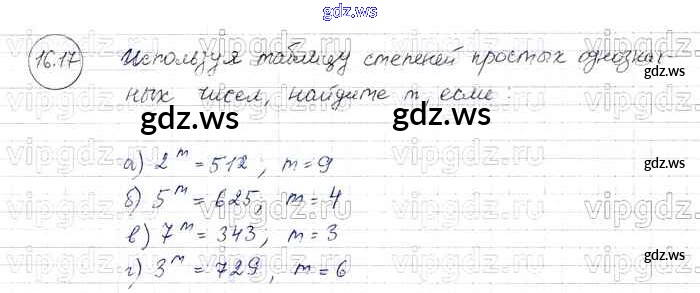 gdz.ws
16.17 Используя таблицу степеней простых однознач
ных чисел, найдите m, если:
gdz.ws
gdz.ws gdz.ws
а) 2^m = 512; m = 9
gdz.ws
б) 5^m = 625, m = 4
в) 7^m = 343; m = 3
gdz.ws
г) 3^m = 729, m = 6
vipgdz.ru